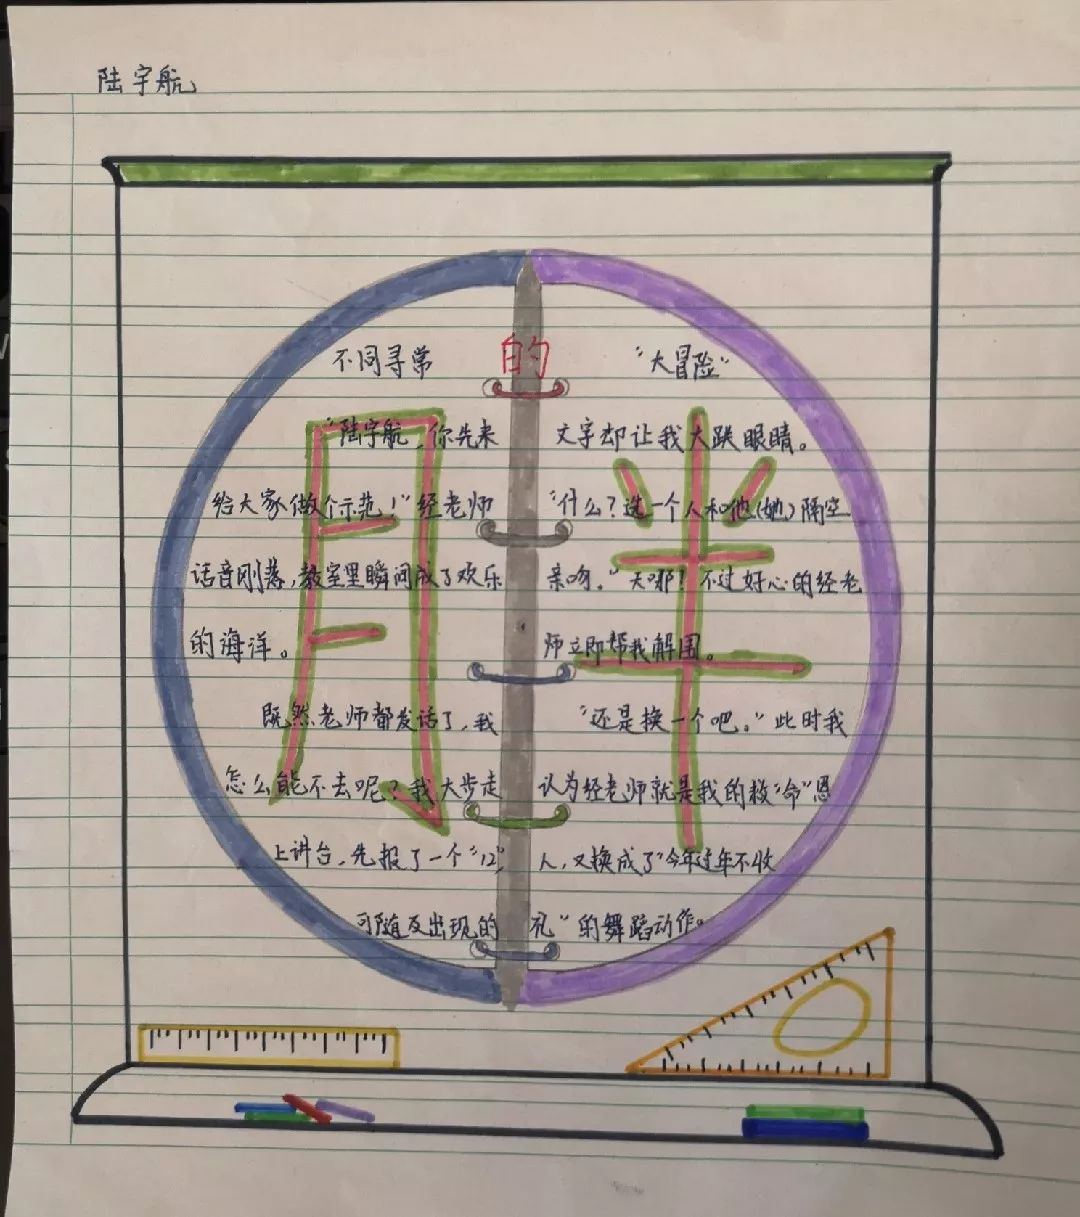 陆宇航
不同寻常的“大冒险”
“陆宇航，你先来
给大家做个示范！”经老师
话音刚落，教室里瞬间成了欢乐
的海洋。
既然老师都发话了，我
怎么能不去呢？我大步走
上讲台，先报了一个“12”，
可随及出现的
文字却让我大跌眼睛。
“什么？选一个人和他（她）隔空
亲吻。”天哪！不过好心的经老
师立即帮我解围。
“还是换一个吧。”此时我
认为经老师就是我的救“命”恩
人，又换成了“今年过年不收
礼”的舞蹈动作。
月半